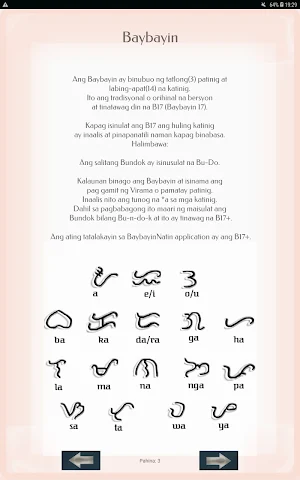 64% 19:29
Baybayin
Ang Baybayin ay binubuo ng tatlong(3) patinig at
labing-apat(14) na katinig.
Ito ang tradisyonal o orihinal na bersyon
at tinatawag din na B17 (Baybayin 17).
Kapag isinulat ang B17 ang huling katinig
ay inaalis at pinapanatili naman kapag binabasa.
Halimbawa:
Ang salitang Bundok ay isinusulat na Bu-Do.
Kalaunan binago ang Baybayin at isinama ang
pag gamit ng Virama o pamatay patinig.
Inaalis nito ang tunog na "a sa mga katinig.
Dahil sa pagbabagong ito maari ng maisulat ang
Bundok bilang Bu-n-do-k at ito ay tinawag na B17+.
Ang ating tatalakayin sa BaybayinNatin application ay ang B17+.
ᜀ ᜁ ᜂ
a e/i o/u
ᜊ ᜃ ᜇ ᜄ ᜑ
ba ka da/ra ga ha
ᜎ ᜋ ᜈ ᜅ ᜉ
la ma na nga pa
ᜐ ᜆ ᜏ ᜌ
sa ta wa ya
Pahina: 3